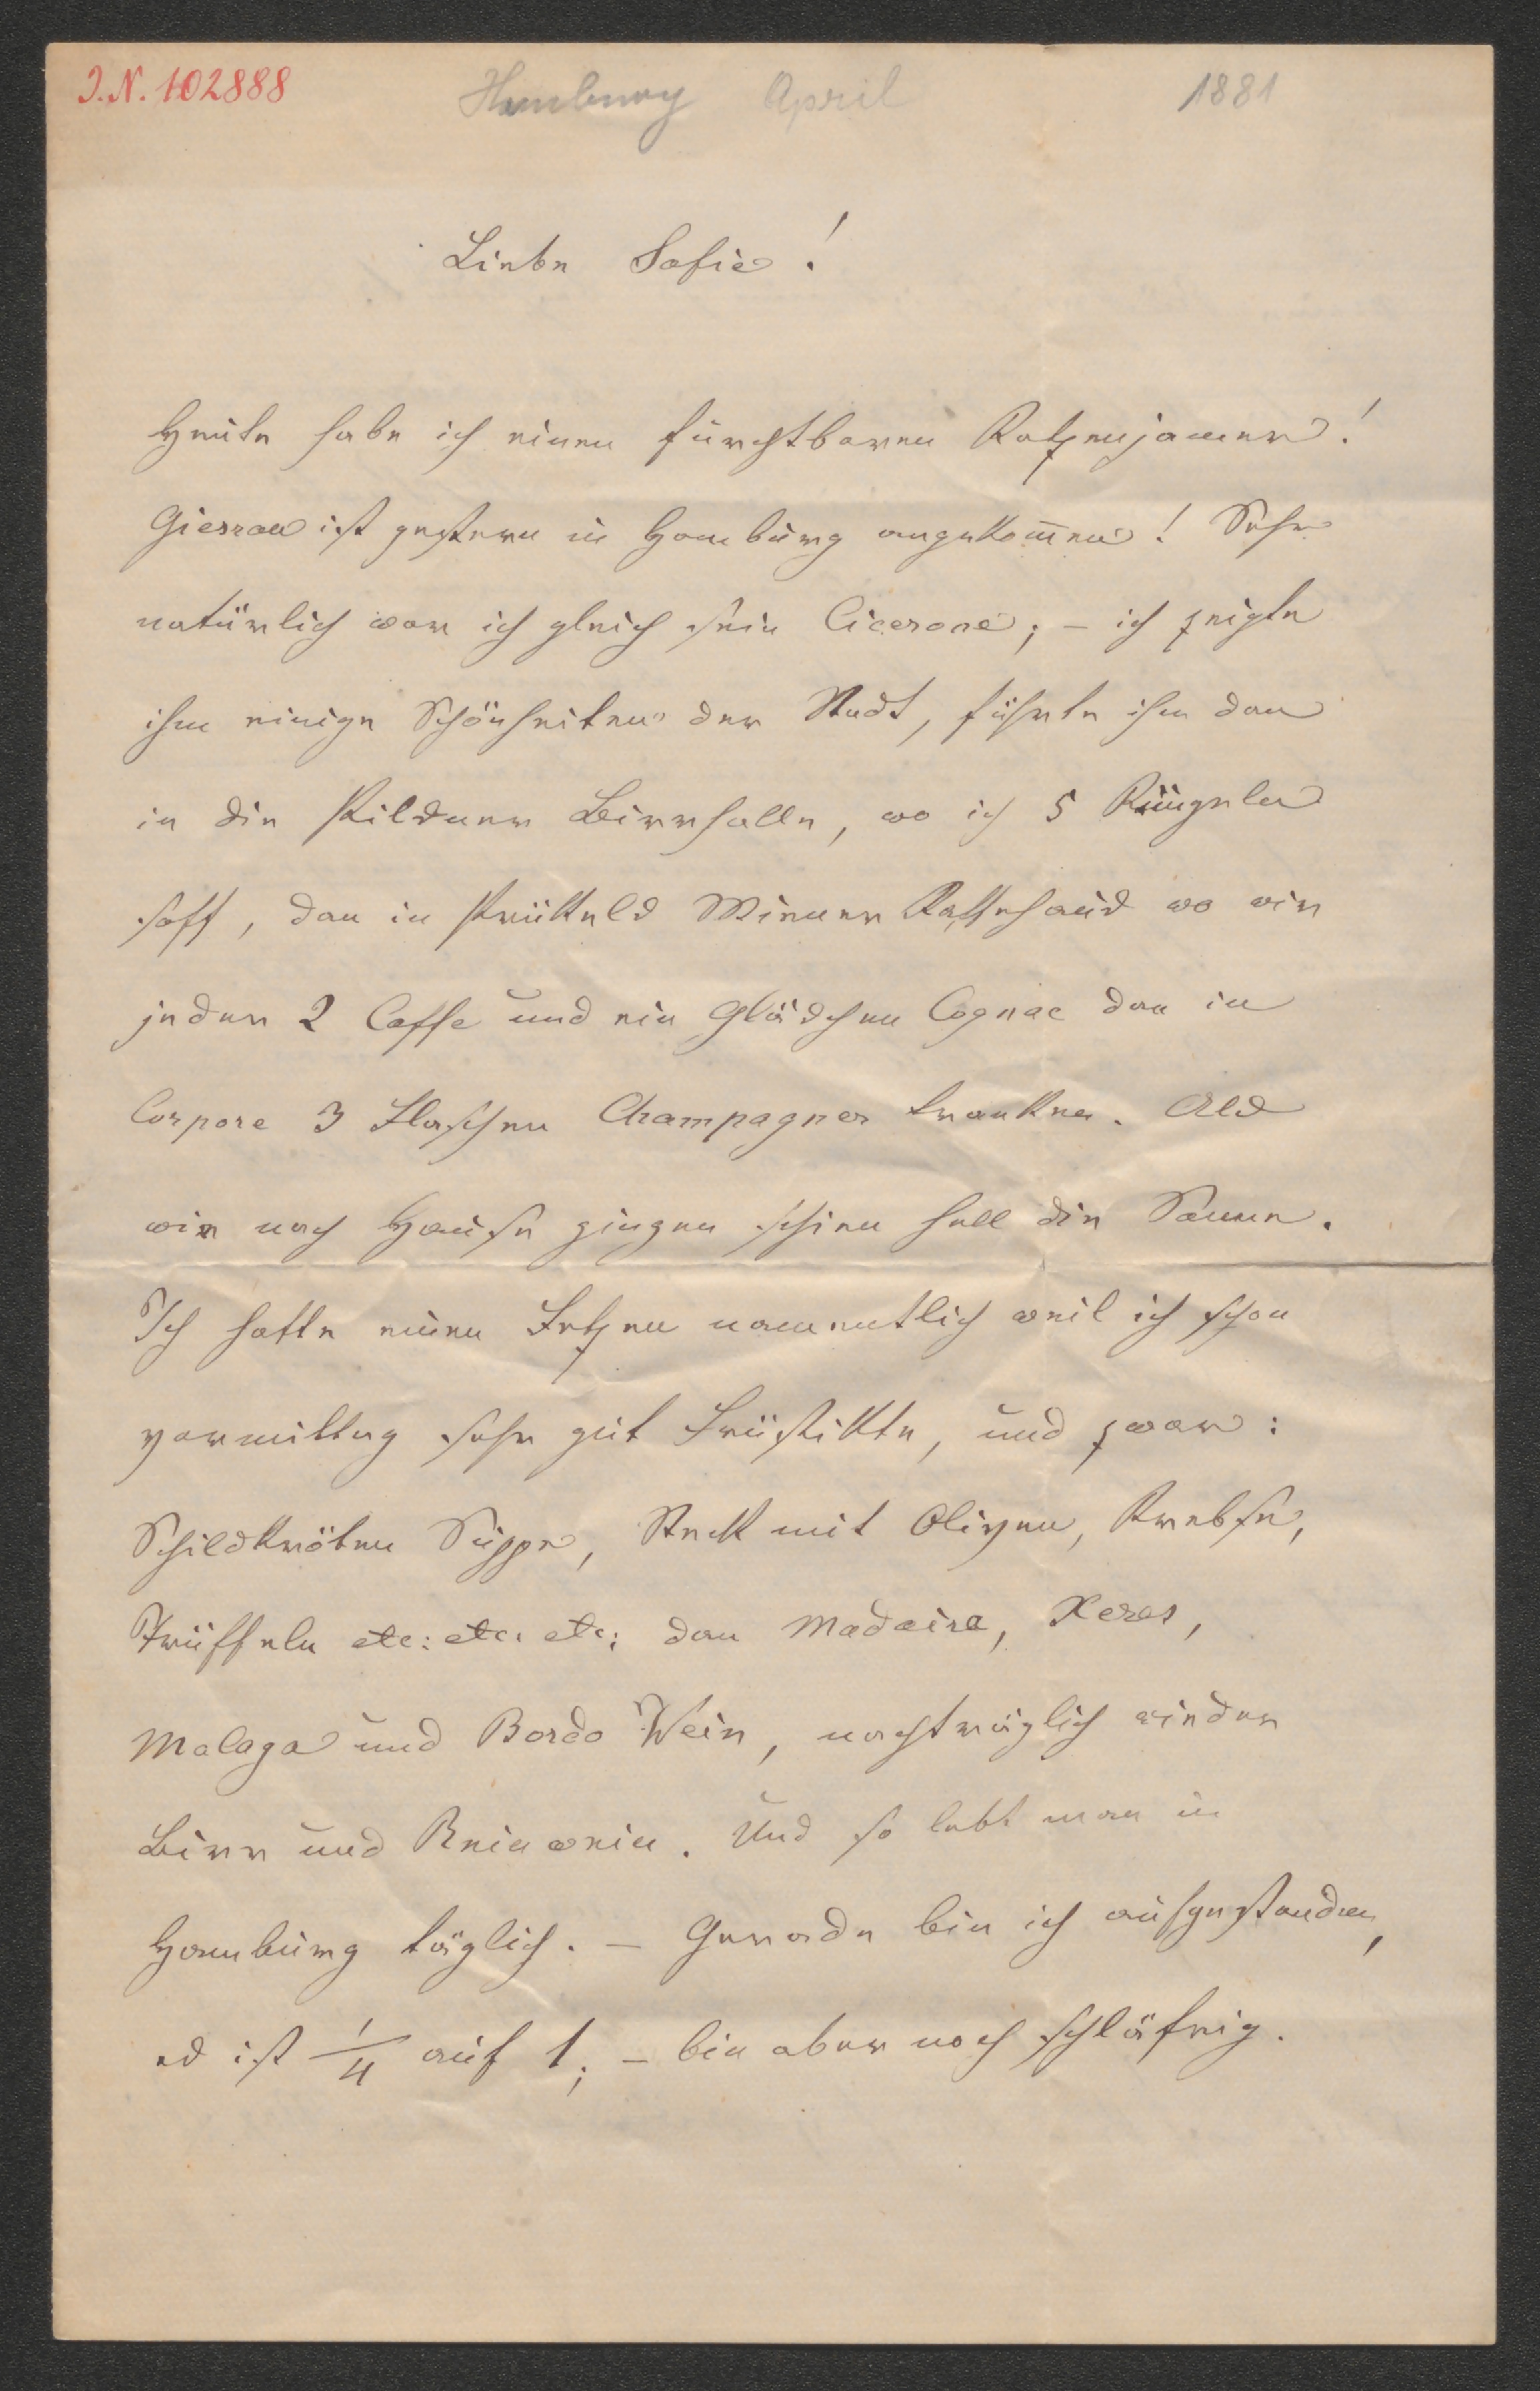 I.N. 102888
Hamburg April 1881
Liebe Sofie!
Heute habe ich einen furchtbaren Katzenjamer!
ist gestern in Hamburg angekom̅en! Sehr
natürlich war ich gleich sein Cicerone; – ich zeigte
ihm einige Schönheiten der Stadt, führte ihn dan
in die Pilsner Bierhalle, wo ich 5 Krügeln
soff, dan in Wiener Kaffehaus wo wir
jeder 2 Caffe und ein Gläschen Cognac dan in
Corpore 3 Flaschen Champagner tranken. Als
wir nach Hause gingen schien hell die Sonne.
Ich hatte einen Fetzen namentlich weil ich schon
vormittag sehr gut Früstikte, und zwar:
Schildkröten Suppe, Steak mit Oliven, Krebse,
Trüffeln etc: etc: etc: dan Madaira, Xeres,
Malaga und Bordo Wein, nachträglich wieder
Bier und Reinwein. Und so lebt man in
Hamburg täglich. – Gerade bin ich aufgestanden,
es ist 1/4 auf 1; – bin aber noch schläfrig.